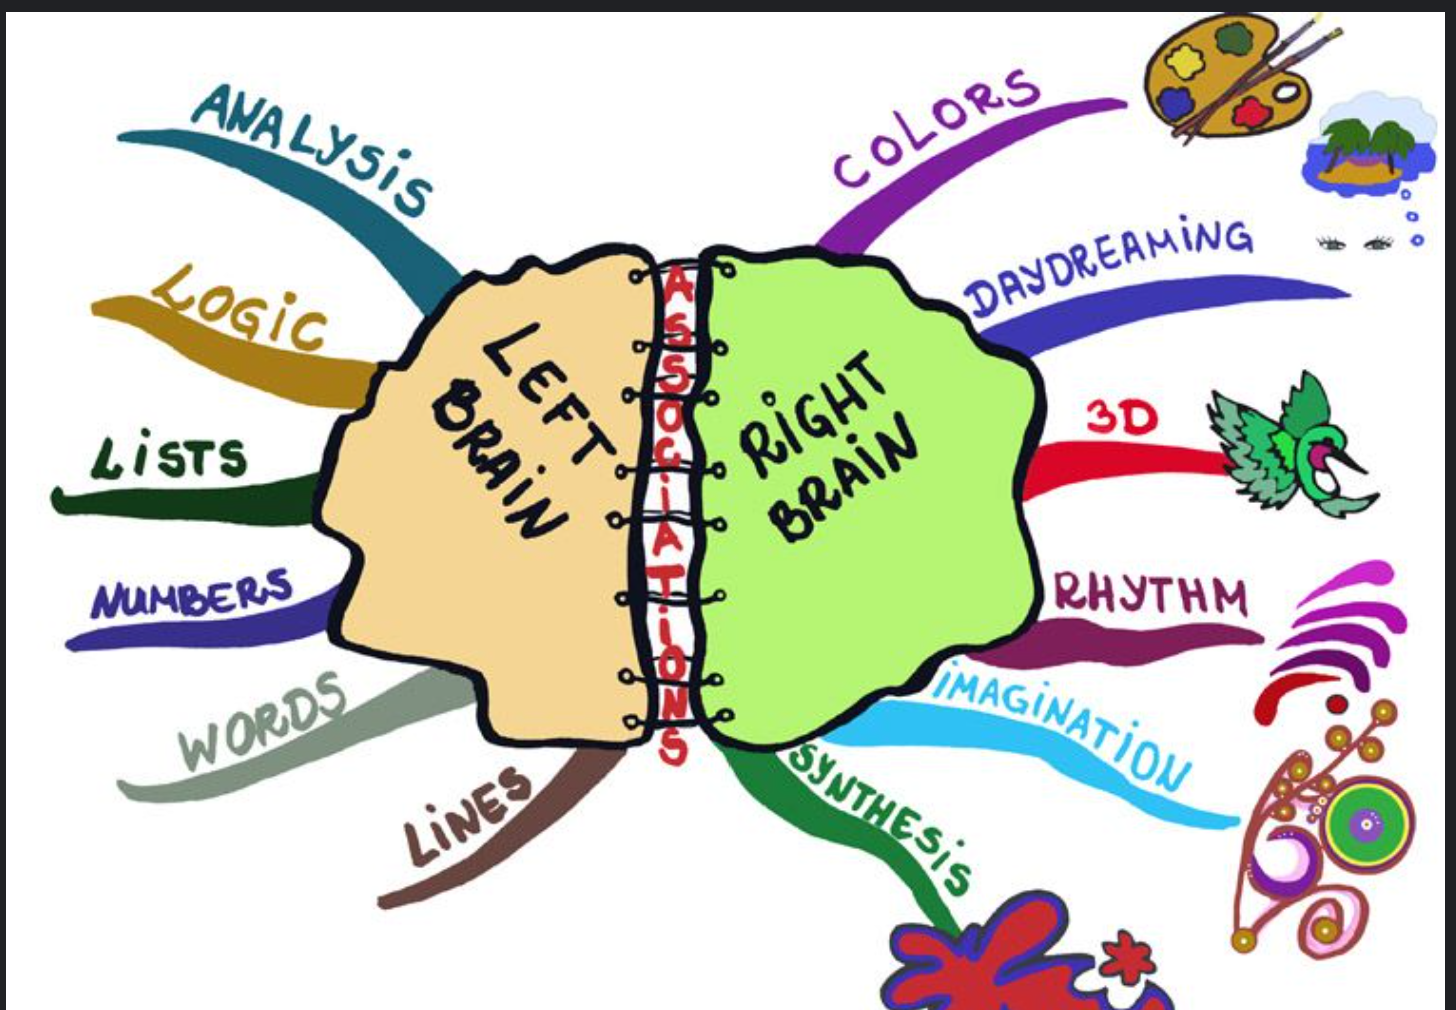 ANALYSiS
LOGiC
LiSTS
NUMBERS
WORDS
LiNES
LEFT
BRAiN
ASSOCiATiONS
RiGHT
BRAiN
COLORS
DAYDREAMiNG
3D
RHYTHM
iMAGiNATiON
SYNTHESiS